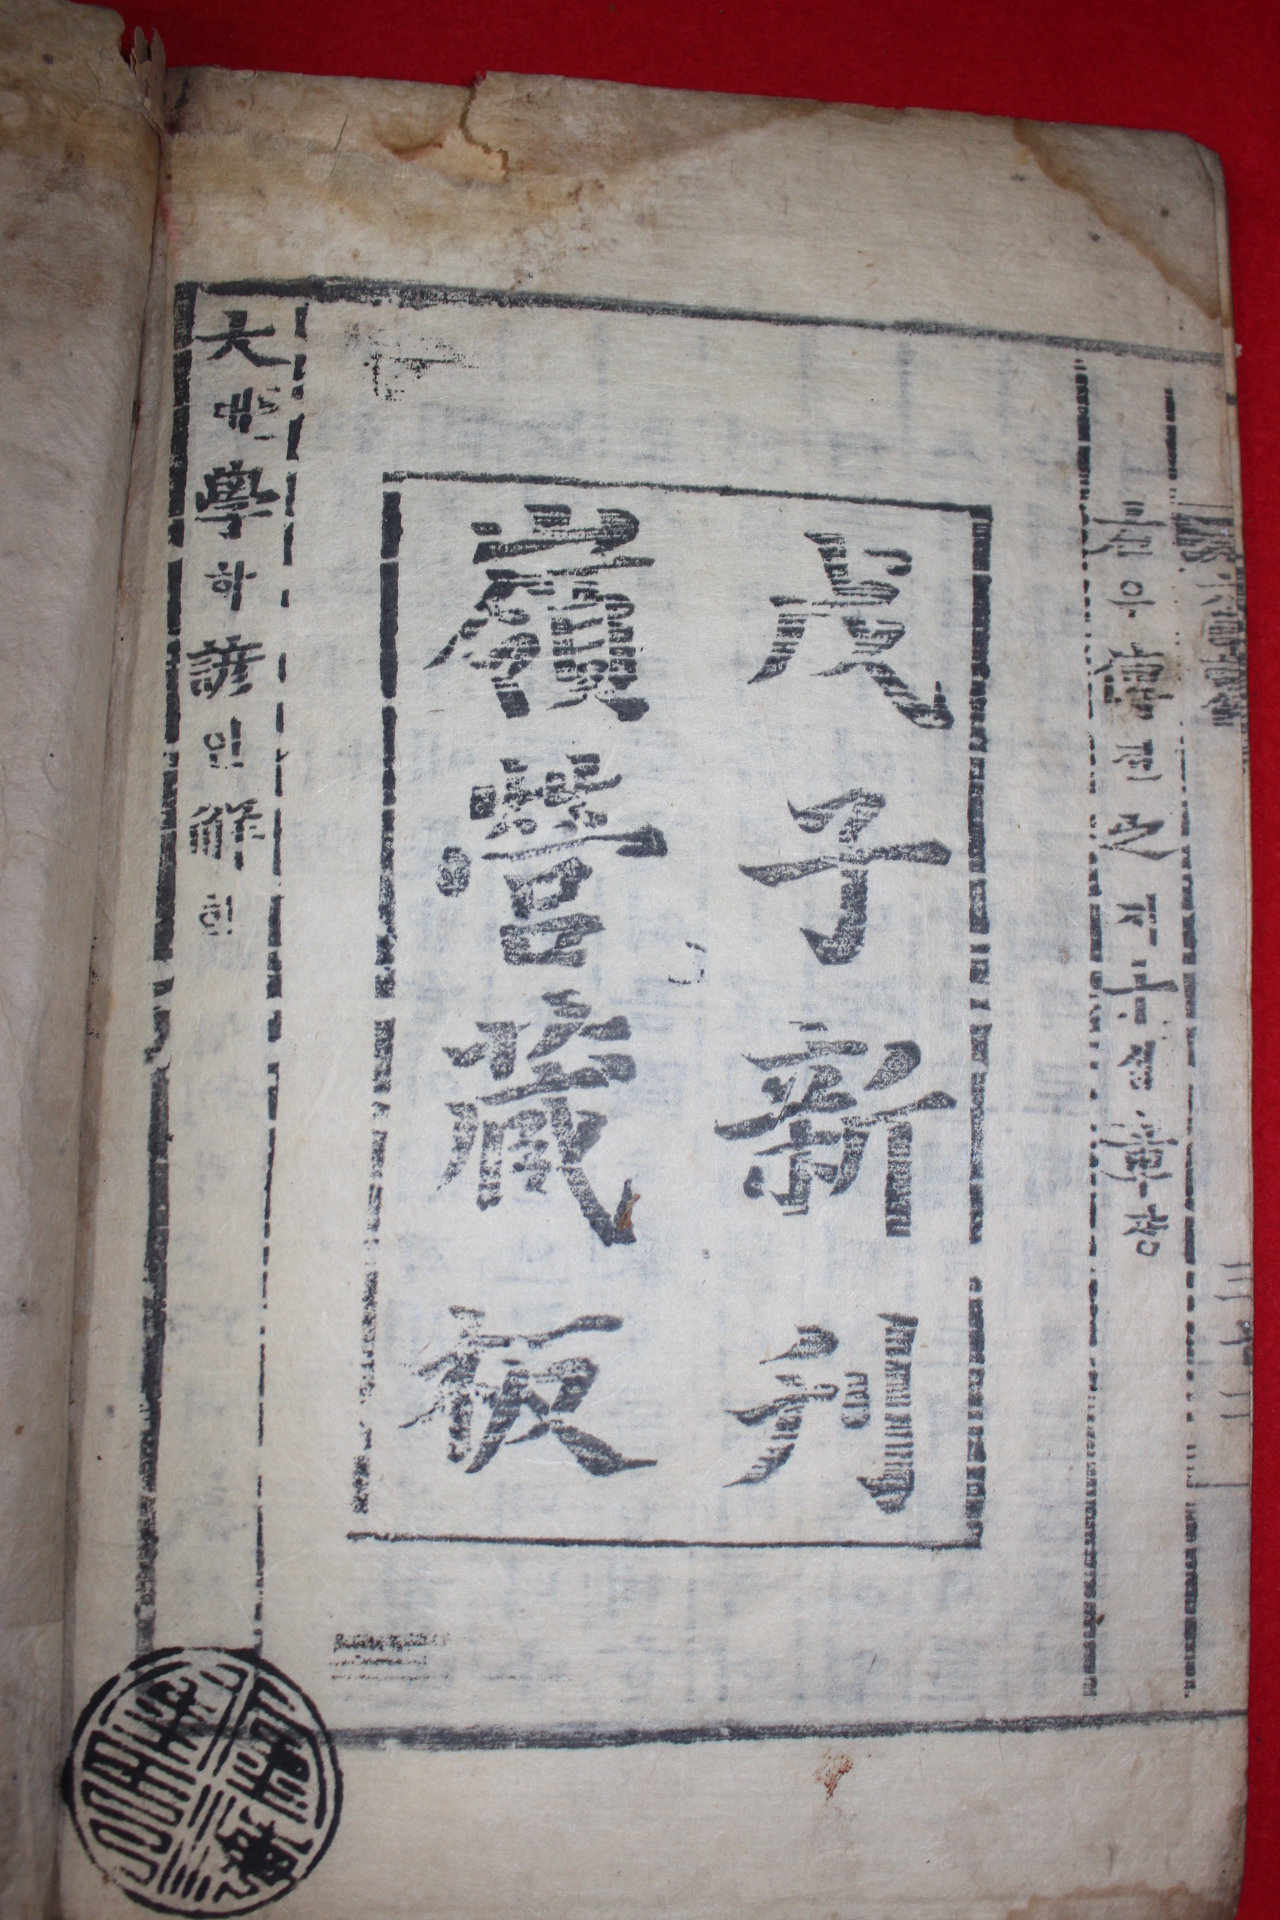 右우傳뎐之지十십章쟝
戊子新刊
嶺營藏板
大대學학諺언解해